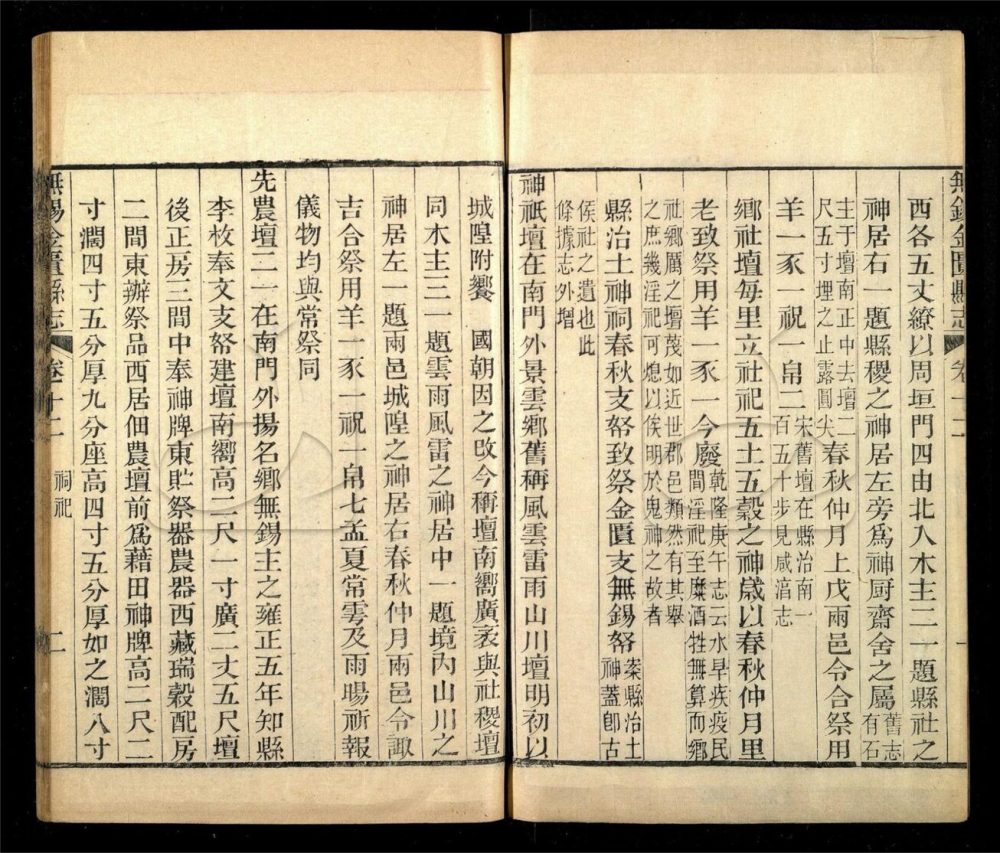 無錫金匱縣志 卷十二 一
西各五丈繚以周垣門四由北入木主二一題縣社之
神居右一題縣稷之神居左旁爲神厨齋舍之屬舊志有石
主于壇南正中去壇二尺五寸埋之止露圓尖春秋仲月上戊兩邑令合祭用
羊一豕一祝一帛二宋舊壇在縣治南一百五十步見咸淳志
鄉社壇每里立社祀五土五穀之神歲以春秋仲月里
老致祭用羊一豕一今廢乾隆庚午志云水旱疾疫民間淫祀至糜酒牲無算而鄉
社鄉厲之壇茂如近世郡邑類然有其舉之庶幾淫祀可熄以俟明於鬼神之故者
縣治土神祠春秋支帑致祭金匱支無錫帑案縣治土神蓋卽古
侯社之遺也此條據志外增
神祇壇在南門外景雲鄉舊稱風雲雷雨山川壇明初以
城隍附饗 國朝因之改今稱壇南嚮廣袤與社稷壇
同木主三一題雲雨風雷之神居中一題境內山川之
神居左一題兩邑城隍之神居右春秋仲月兩邑令諏
吉合祭用羊一豕一祝一帛七孟夏常雩及雨暘祈報
儀物均與常祭同
先農壇二一在南門外揚名鄉無錫主之雍正五年知縣
李枚奉文支帑建壇南嚮高二尺一寸廣二丈五尺壇
後正房三間中奉神牌東貯祭器農器西藏瑞穀配房
二間東辦祭品西居佃農壇前爲藉田神牌高二尺二
寸濶四寸五分厚九分座高四寸五分厚如之濶八寸
無錫金匱縣志 卷十二 祠祀 二